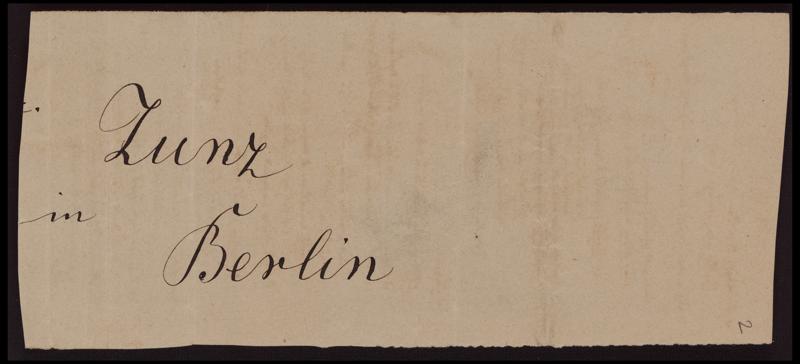 Zunz
in
Berlin
2